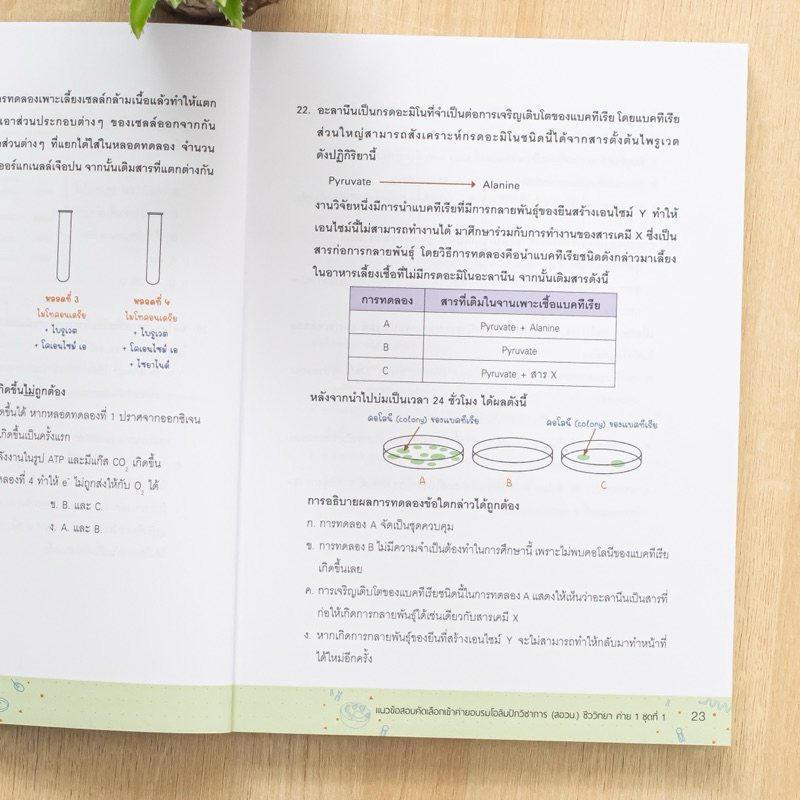 ารทดลองเพาะเลี้ยงเซลล์กล้ามเนื้อแล้วทำให้แตก
เอาส่วนประกอบต่างๆ ของเซลล์ออกจากกัน
ส่วนต่างๆ ที่แยกได้ใส่ในหลอดทดลอง จำนวน
ออร์แกเนลล์เจือปน จากนั้นเติมสารที่แตกต่างกัน
หลอดที่ 3
ไมโทคอนเดรีย
+ ไพรูเวต
+ โคเอนไซม์ เอ
หลอดที่ 4
ไมโทคอนเดรีย
+ ไพรูเวต
+ โคเอนไซม์ เอ
+ ไซยาไนด์
กิดขึ้นไม่ถูกต้อง
ดขึ้นได้ หากหลอดทดลองที่ 1 ปราศจากออกซิเจน
เกิดขึ้นเป็นครั้งแรก
ลังงานในรูป ATP และมีแก๊ส CO2 เกิดขึ้น
ดลองที่ 4 ทำให้ e- ไม่ถูกส่งให้กับ O2 ได้
ข. B. และ C.
ง. A. และ B.
22. อะลานีนเป็นกรดอะมิโนที่จำเป็นต่อการเจริญเติบโตของแบคทีเรีย โดยแบคทีเรีย
ส่วนใหญ่สามารถสังเคราะห์กรดอะมิโนชนิดนี้ได้จากสารตั้งต้นไพรูเวต
ดังปฏิกิริยานี้
Pyruvate → Alanine
งานวิจัยหนึ่งมีการนำแบคทีเรียที่มีการกลายพันธุ์ของยีนสร้างเอนไซม์ Y ทำให้
เอนไซม์นี้ไม่สามารถทำงานได้ มาศึกษาร่วมกับการทำงานของสารเคมี X ซึ่งเป็น
สารก่อการกลายพันธุ์ โดยวิธีการทดลองคือนำแบคทีเรียชนิดดังกล่าวมาเลี้ยง
ในอาหารเลี้ยงเชื้อที่ไม่มีกรดอะมิโนอะลานีน จากนั้นเติมสารดังนี้
การทดลอง สารที่เติมในจานเพาะเชื้อแบคทีเรีย
A Pyruvate + Alanine
B Pyruvate
C Pyruvate + สาร X
หลังจากนำไปบ่มเป็นเวลา 24 ชั่วโมง ได้ผลดังนี้
คอโลนี (colony) ของแบคทีเรีย
คอโลนี (colony) ของแบคทีเรีย
A B C
การอธิบายผลการทดลองข้อใดกล่าวได้ถูกต้อง
ก. การทดลอง A จัดเป็นชุดควบคุม
ข. การทดลอง B ไม่มีความจำเป็นต้องทำในการศึกษานี้ เพราะไม่พบคอโลนีของแบคทีเรีย
เกิดขึ้นเลย
ค. การเจริญเติบโตของแบคทีเรียชนิดนี้ในการทดลอง A แสดงให้เห็นว่าอะลานีนเป็นสารที่
ก่อให้เกิดการกลายพันธุ์ได้เช่นเดียวกับสารเคมี X
ง. หากเกิดการกลายพันธุ์ของยีนที่สร้างเอนไซม์ Y จะไม่สามารถทำให้กลับมาทำหน้าที่
ได้ใหม่อีกครั้ง
แนวข้อสอบคัดเลือกเข้าค่ายอบรมโอลิมปิกวิชาการ (สอวน.) ชีววิทยา ค่าย 1 ชุดที่ 1 23